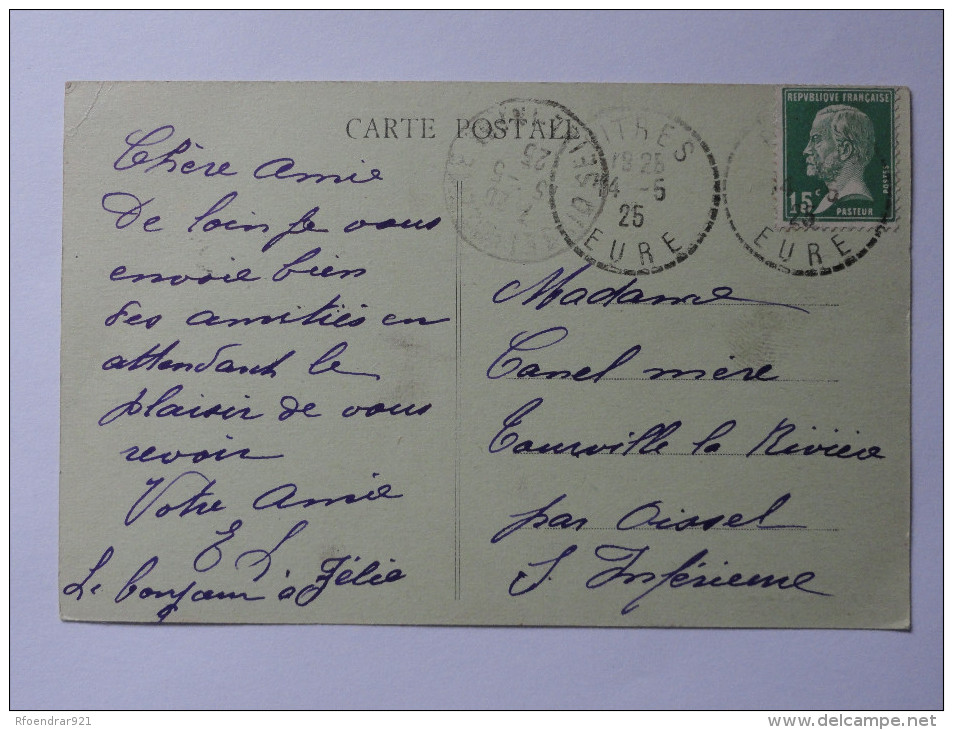 CARTE POSTALE
Chère Amie
De loin je vous
envoie bien
des amitiés en
attendant le
plaisir de vous
revoir
Votre Amie
E L
Le bonjour à Félie
ITRES
18 25
4 - 5
25
EURE
EURE
REPVBLIQUE FRANÇAISE
15c
PASTEUR
POSTES
Madame
Canel mère
Tourville la Rivière
par Oissel
S. Inférieure
Rfoendrar921
www.delcampe.net